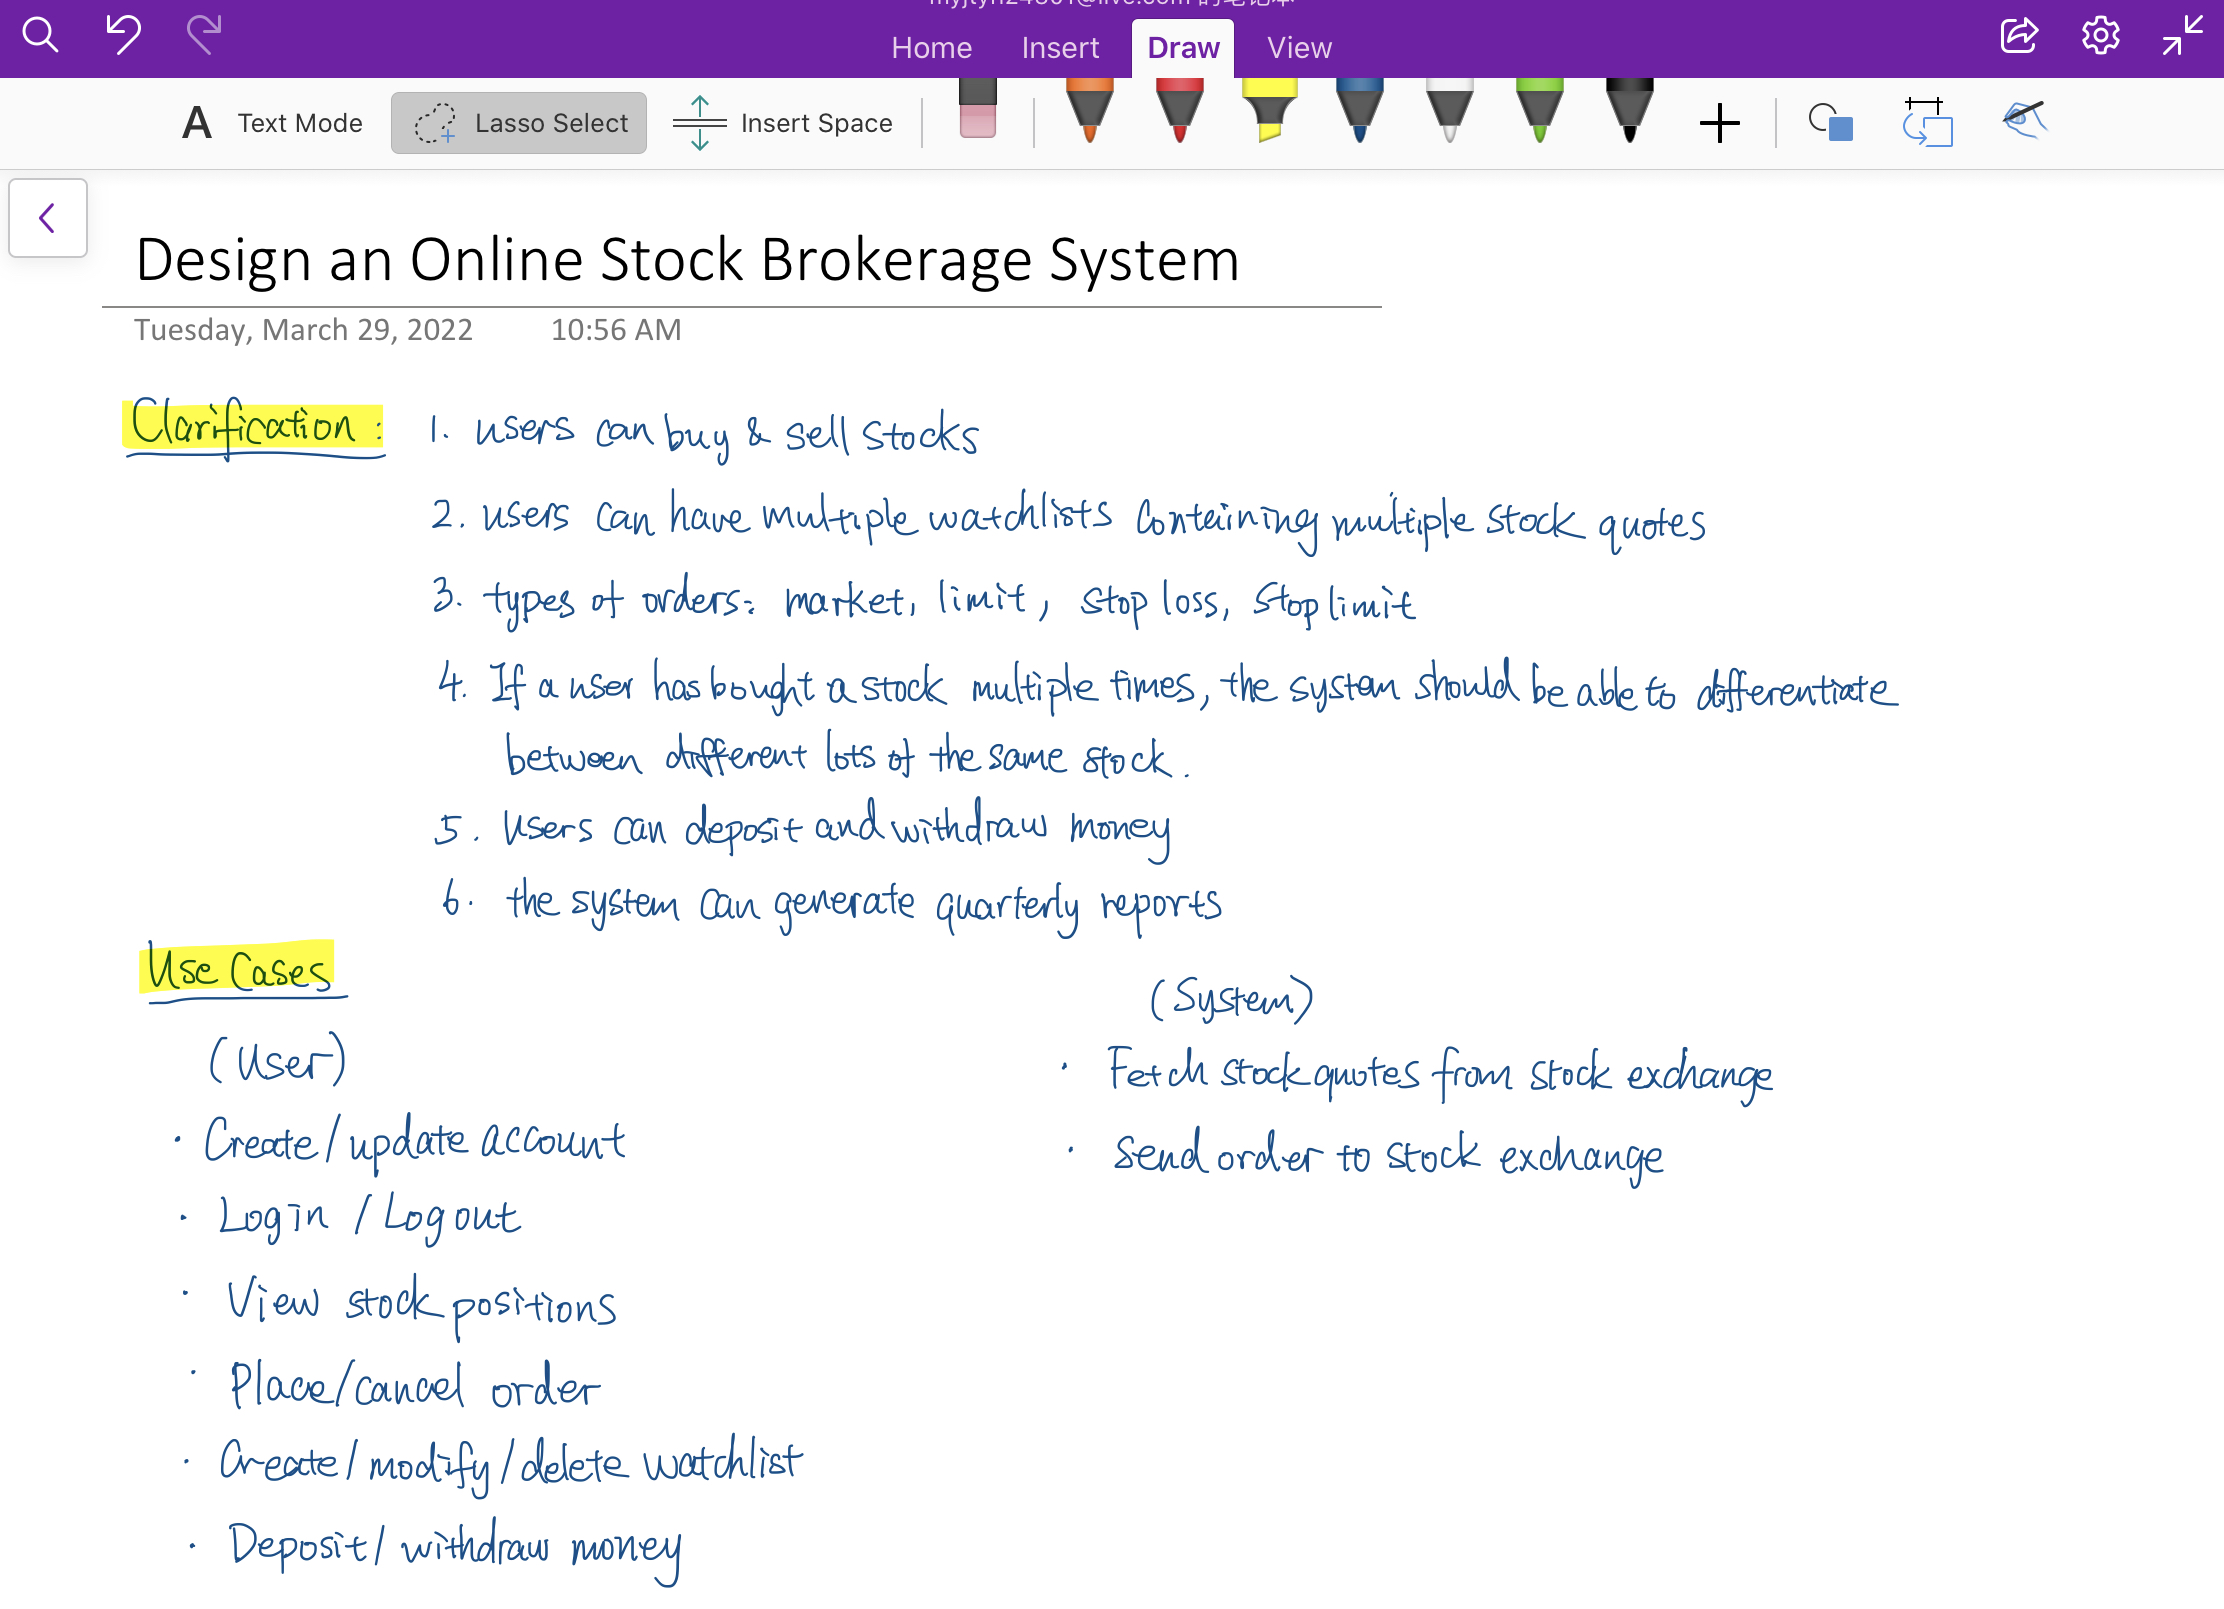 的笔记本
Home Insert Draw View
A Text Mode Lasso Select Insert Space
Design an Online Stock Brokerage System
Tuesday, March 29, 2022 10:56 AM
Clarification: 1. users can buy & sell stocks
2. users can have multiple watchlists containing multiple stock quotes
3. types of orders: market, limit, stop loss, stop limit
4. If a user has bought a stock multiple times, the system should be able to differentiate
between different lots of the same stock.
5. Users can deposit and withdraw money
6. the system can generate quarterly reports
Use Cases
(User)
· Create/update account
· Login / Logout
· View stock positions
· Place/cancel order
· Create/modify/delete watchlist
· Deposit/withdraw money
(System)
· Fetch stock quotes from stock exchange
· Send order to stock exchange